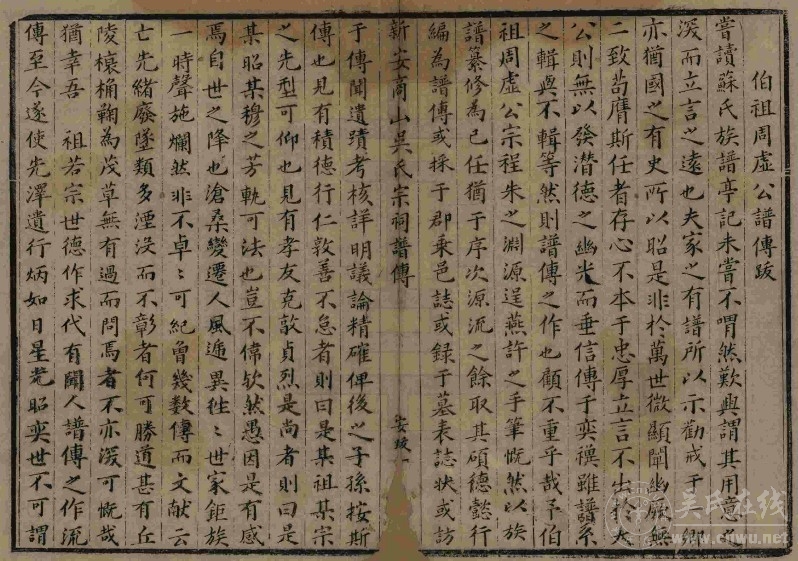 伯祖周虛公譜傳跋
嘗讀蘇氏族譜亭記未嘗不喟然歎與謂其用意之
深而立言之遠也夫家之有譜所以示勸戒于
亦猶國之有史所以昭是非於萬世微顯闡幽厥無
二致苟膺斯任者存心不本于忠厚立言不出於大
公則無以發潛德之幽光而垂信傳于奕禩雖譜系
之輯與不輯等然則譜傳之作也顧不重乎哉予伯
祖周虛公宗程朱之淵源逞燕許之手筆慨然以族
譜纂修為己任猶于序次源流之餘取其碩德懿行
編為譜傳或採于郡乘邑誌或録于墓表誌狀或訪
新安商山吳氏宗祠譜傳
安跋一
于傳聞遺蹟考核詳明議論精確俾後之子孫按斯
傳也見有積德行仁敦善不怠者則曰是某祖某宗
之先型可仰也見有孝友克敦貞烈是尚者則曰是
某昭某穆之芳軌可法也豈不偉欤然愚因是有感
焉自世之降也滄桑變遷人風遞異往〻世家鉅族
一時聲施爛然非不卓〻可紀曾幾數傳而文献云
亡先緒廢墜類多湮沒而不彰者何可勝道甚有丘
陵榱桷鞠為茂草無有過而問焉者不亦深可慨哉
猶幸吾 祖若宗世德作求代有聞人譜傳之作流
傳至今遂使先澤遺行炳如日星光昭奕世不可謂
吴氏在线
www.cnwu.net